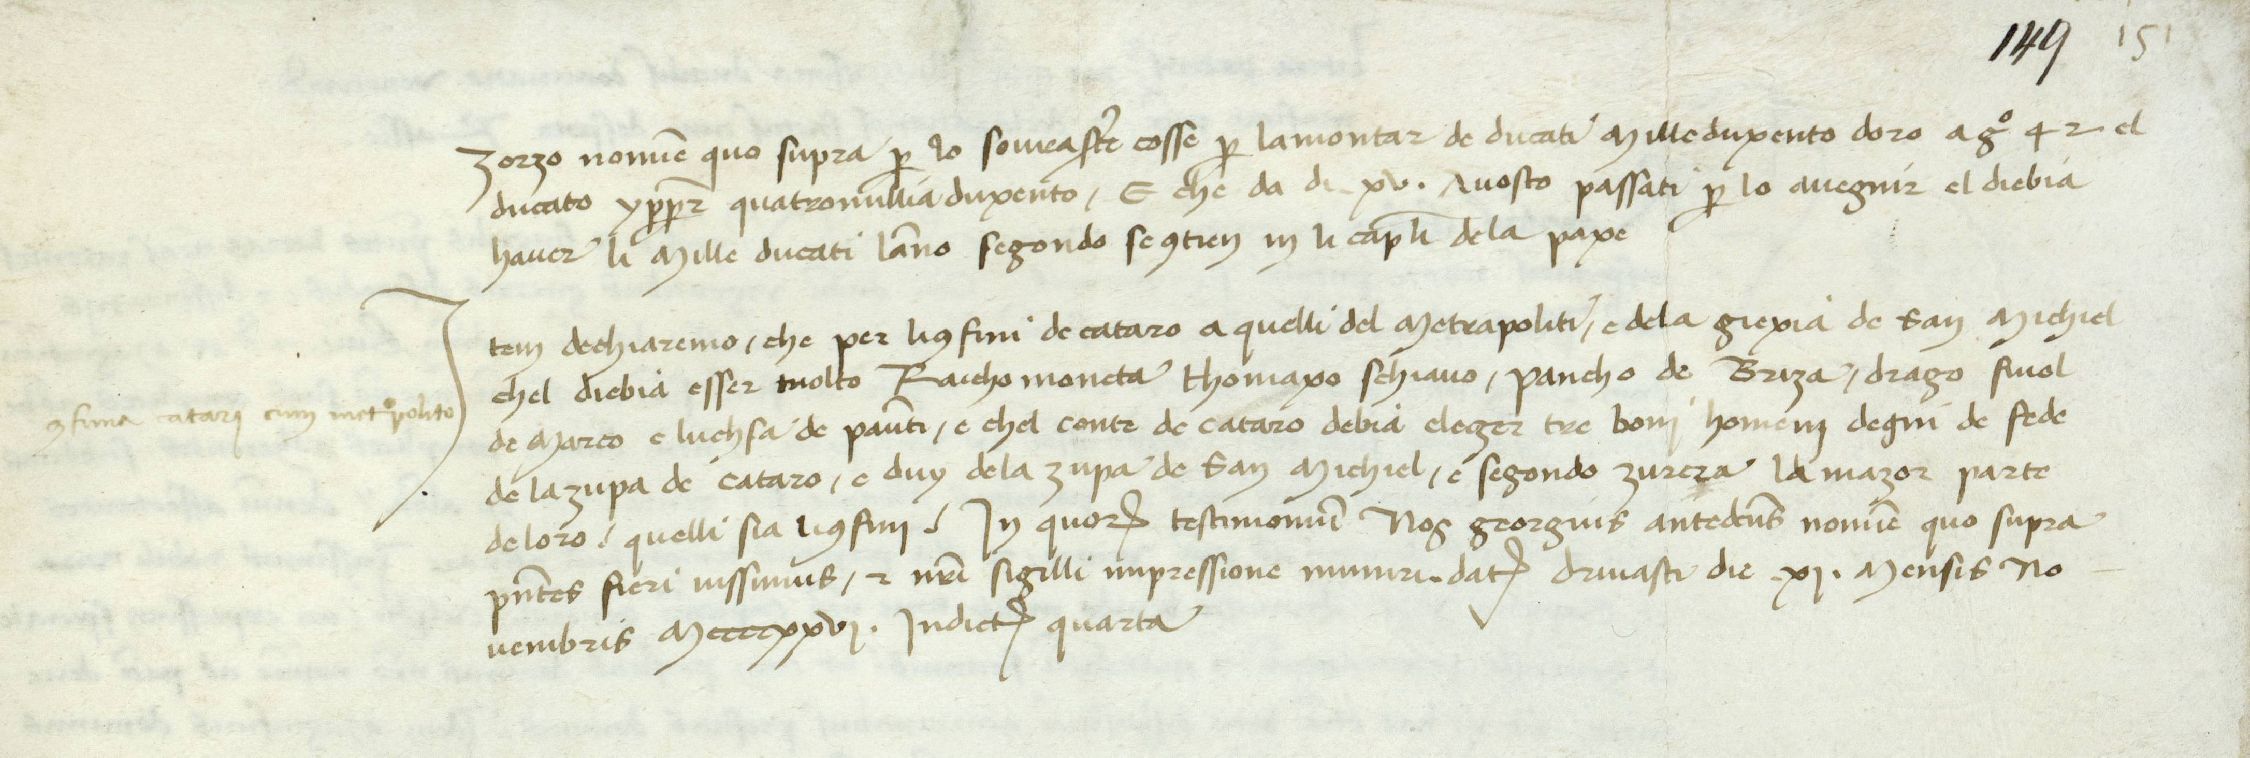 149 151
Zorzo nomīe quo supra ꝑ lo sourascr̄te cosse ꝑ lamontar de ducati Mille duxento doro a gº 4 2 el
ducato ypꝑꝑ quatromillia duxento / E che da di .xv. Auosto passati ꝑ lo auegnir el diebia
hauer li Mille ducati lan̄o segondo se ꝯtien in li capl̄i dela paxe
Item dechiaremo / che per li ꝯfini de cataro a quelli del Metrapoliti / e dela giexia de San Michiel
chel diebia esser tolto Raicho moneta thomaxo schiauo / pancho de Briza / drago fiuol
de Marco e luchsa de paut̄i / e chel conte de cataro debia eleger tre boni homeni degni de fede
ꝯfinia catari cum met͛polito
de la zupa de cataro / e duy dela zupa de San Michiel / e segondo zurera la mazor parte
de loro / quelli sia li ꝯfini / In quoꝝ testimoniū Nos georgius antedc̄us nomīe quo supra
pn̄tes fieri iussimus / ⁊ nr̄i sigilli impressione muniri. datꝫ driuasti die .xj. Mensis No
uembris Mccccxxvj. Indictꝫ quarta